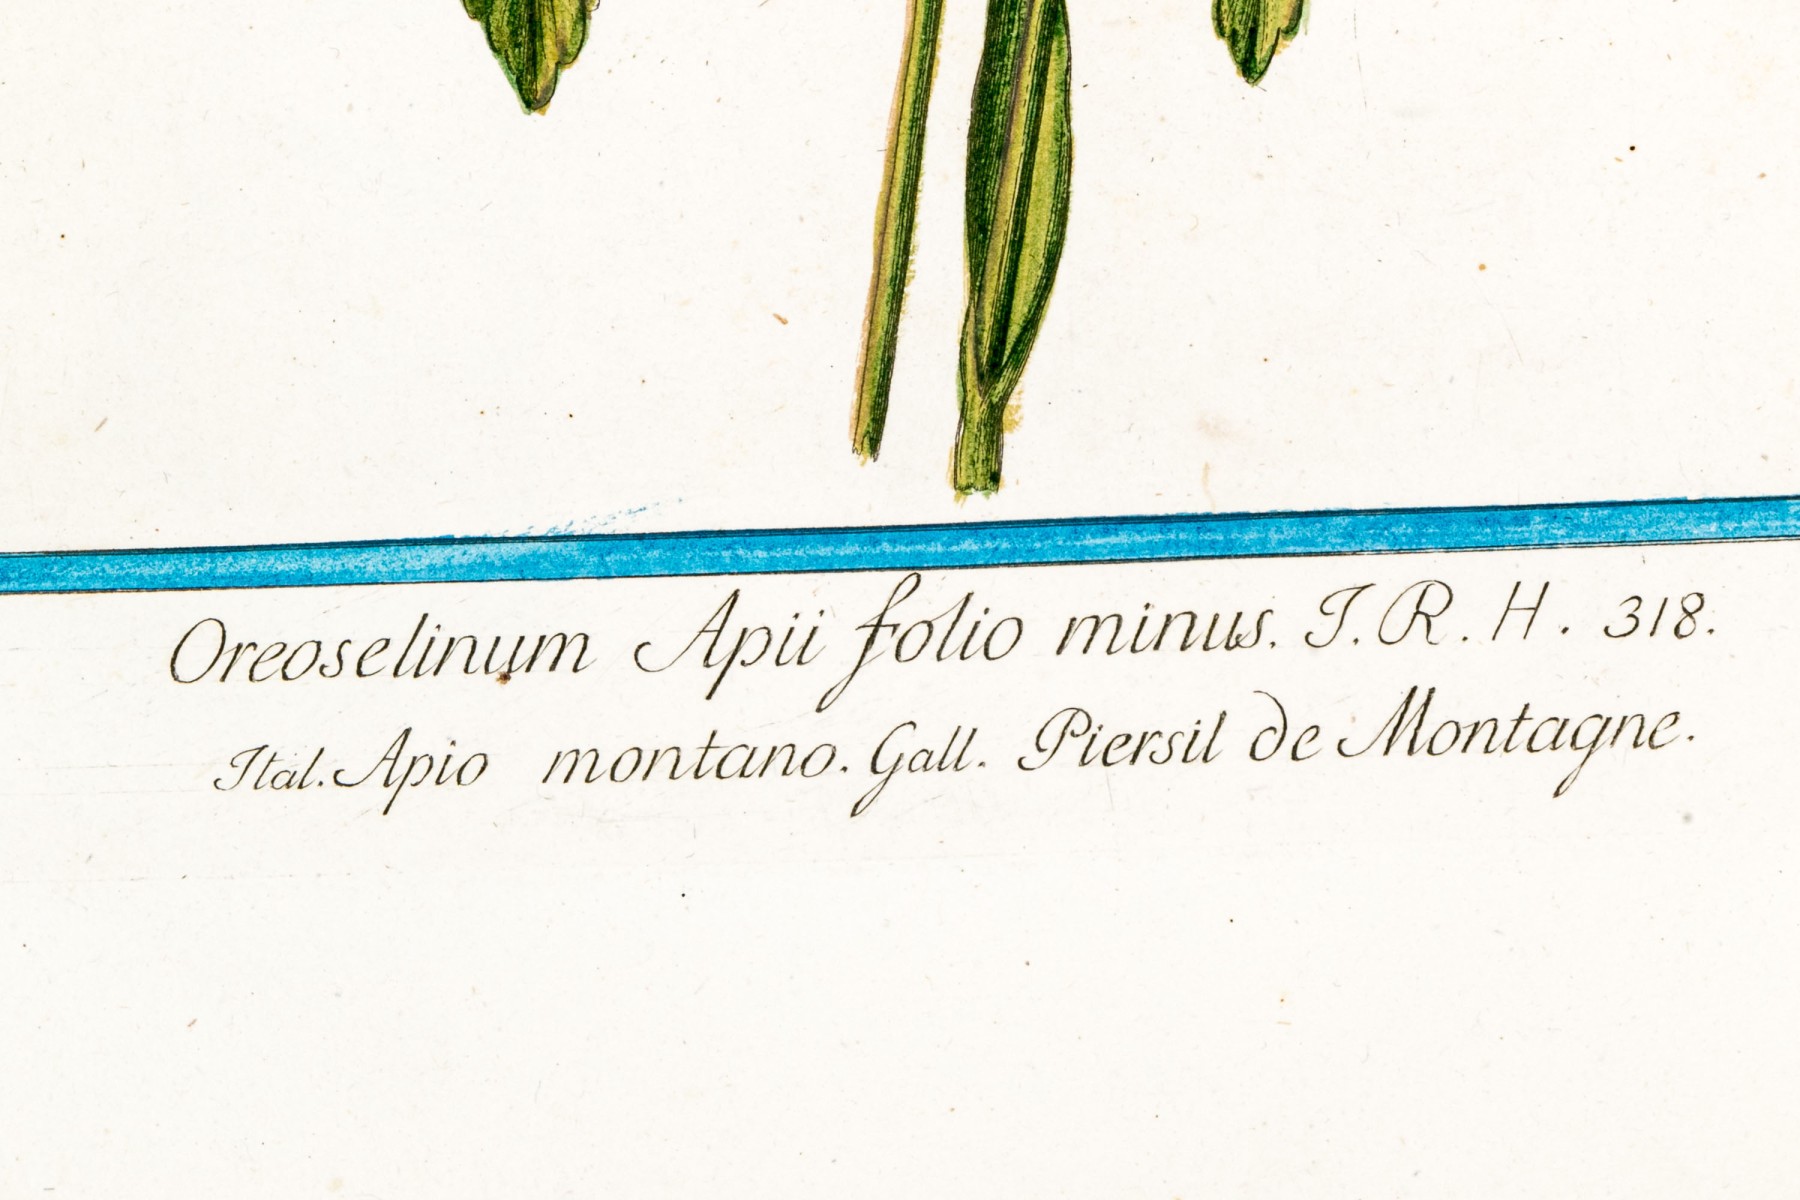 Oreoselinum Apii folio minus. I. R. H. 318.
Ital. Apio montano. Gall. Piersil de Montagne.